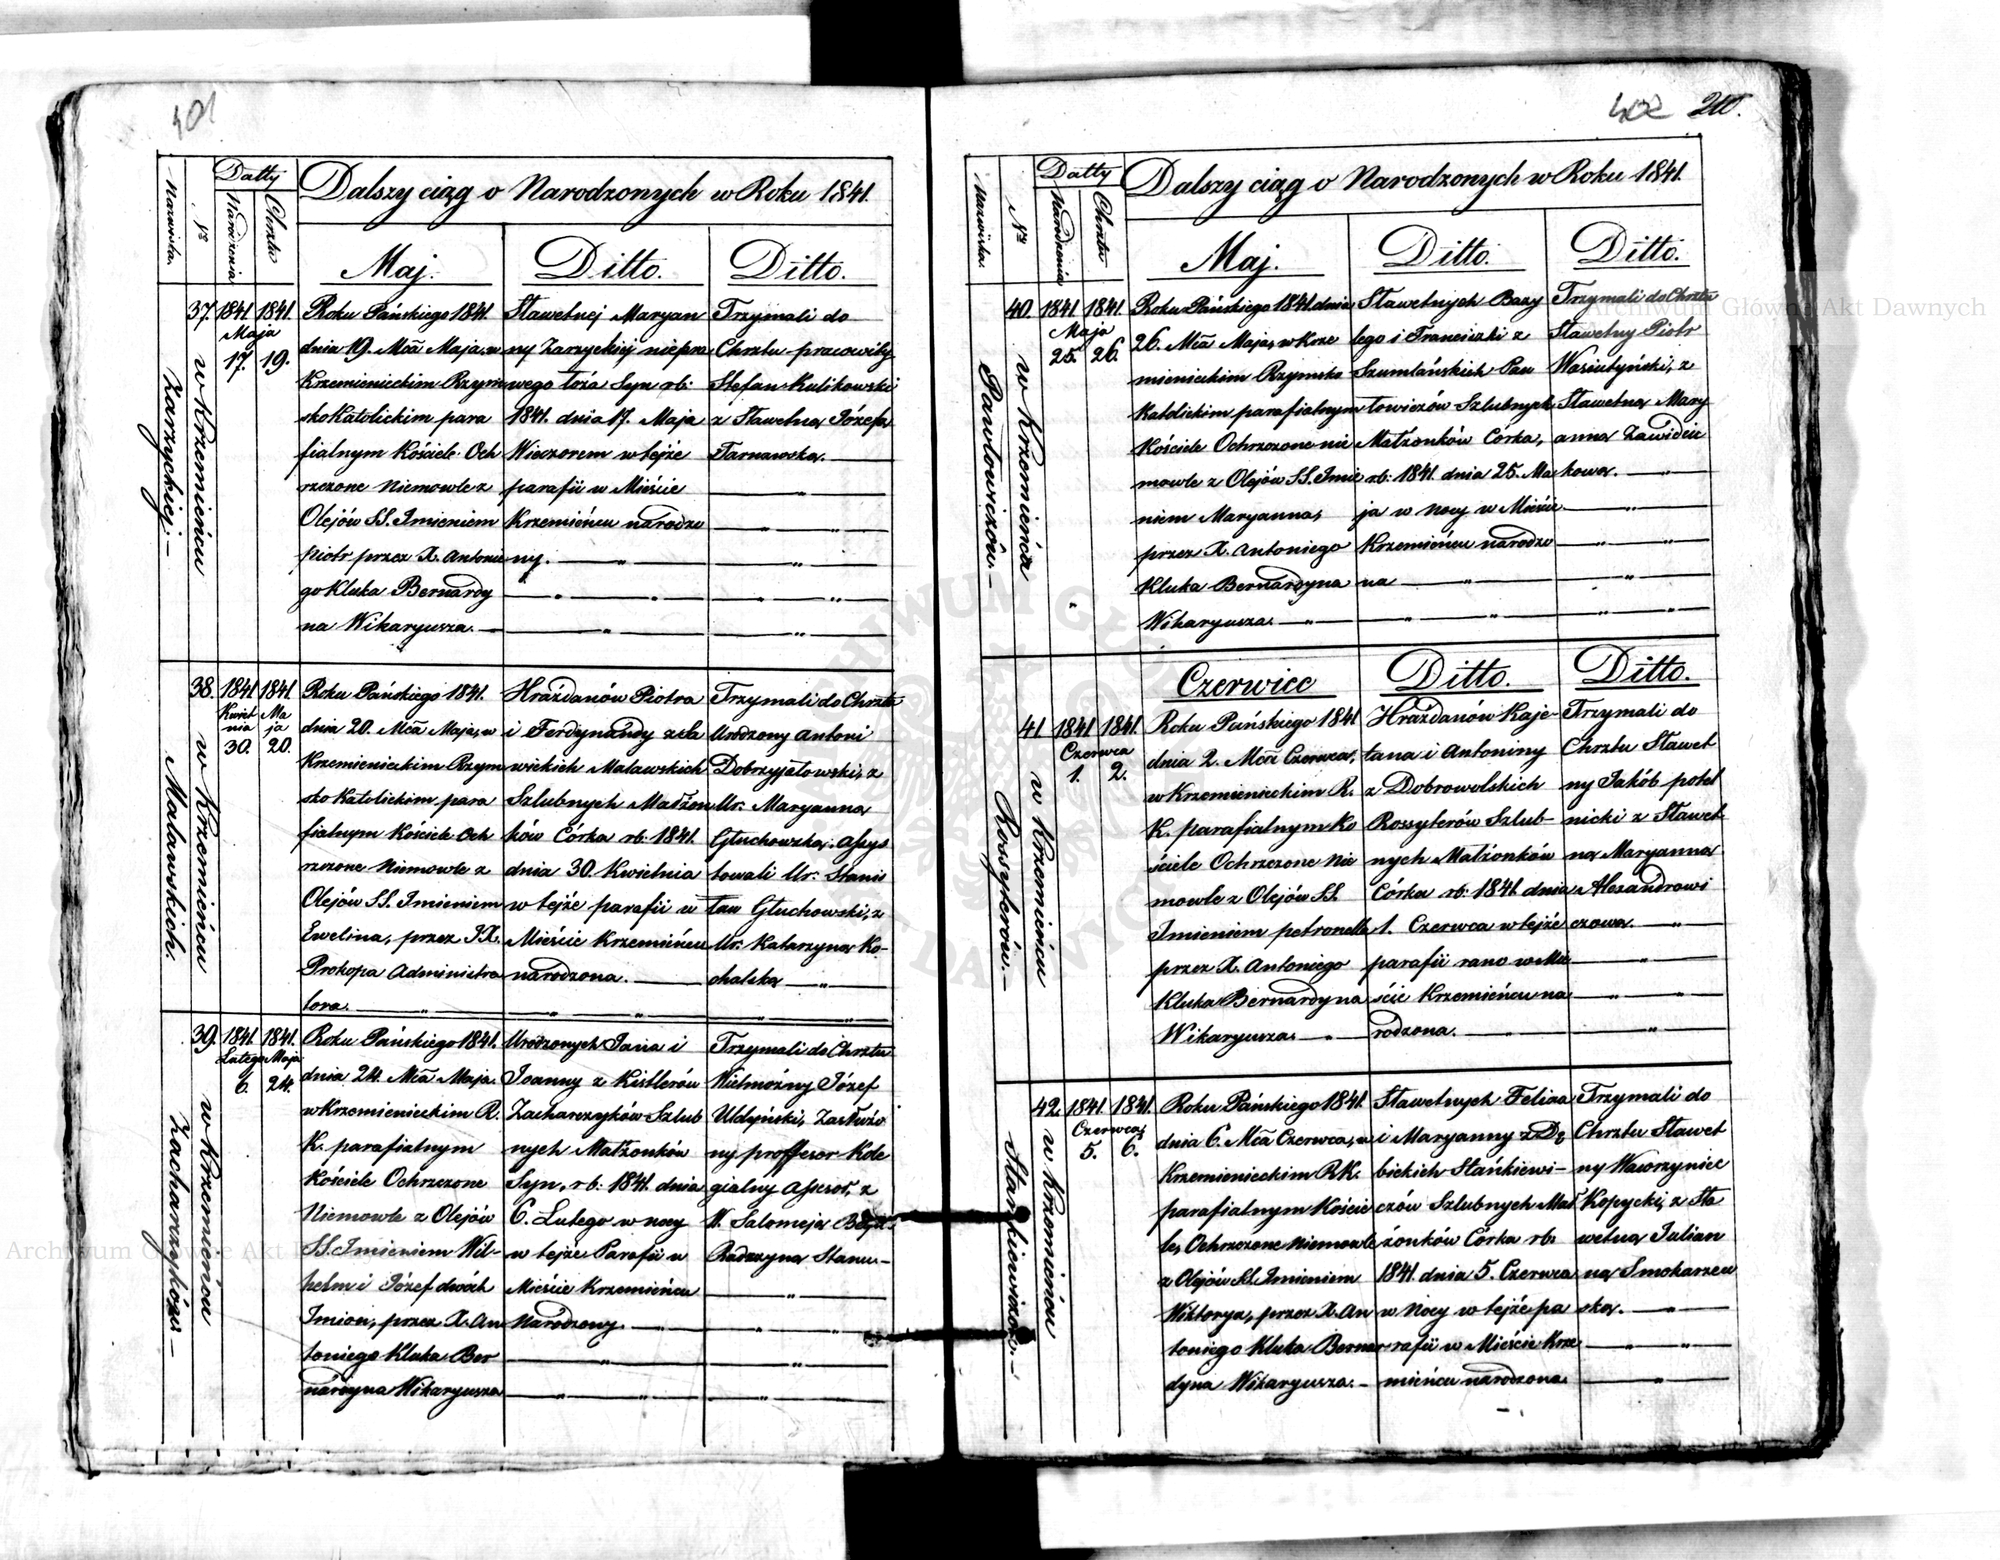 401
Datty
Dalszy ciąg o Narodzonych w Roku 1841.
Nazwiska.
Nr
Narodzenia
Chrztu
Maj.
Ditto.
Ditto.
37.
1841
1841.
Maja
17.
19.
w Krzemieńcu
Zarzyckiej.—
Roku Pańskiego 1841.
dnia 19. Mca Maja, w
Krzemienieckim Rzym
sko Katolickim para
fialnym Kościele Och
rzczone Niemowle z
Olejów SS. Imieniem
Piotr przez X. Antonie
go Kluka Bernardy
na Wikaryusza.—
Sławetnej Maryan
ny Zarzyckiej niepra
wego łoża Syn rb:
1841. dnia 17. Maja
Wieczorem w tejże
parafii w Mieście
Krzemieńcu narodzo
ny.
Trzymali do
Chrztu pracowity
Stefan Kulikowski
z Sławetną Józefą
Tarnawską.
38.
1841
1841.
Kwiet
nia
30.
Ma
ja
20.
w Krzemieńcu
Malawskich.
Roku Pańskiego 1841.
dnia 20. Mca Maja, w
Krzemienieckim Rzym
sko Katolickim para
fialnym Kościele Och
rzczone Niemowle z
Olejów SS. Imieniem
Ewelina, przez JX.
Prokopa Administra
tora.
Hrażdanów Piotra
i Ferdynandy z Sa
wickich Malawskich
Szlubnych Małżon
ków Córka rb. 1841.
dnia 30. Kwietnia
w tejże parafii w
Mieście Krzemieńcu
narodzona.
Trzymali do Chrztu
Urodzony Antoni
Dobrzyjałowski, z
Ur: Maryanną
Głuchowską; Assys
towali Ur: Stanis
ław Głuchowski, z
Ur: Katarzyną Ko-
chalską
39.
1841.
1841.
Lutego
6.
Maja
24.
w Krzemieńcu
Zacharzyków—
Roku Pańskiego 1841.
dnia 24. Mca Maja.
w Krzemienieckim R.
K. parafialnym
Kościele Ochrzczone
Niemowle z Olejów
SS. Imieniem Wil-
helm i Józef dwóch
Imion, przez X. An
toniego Kluka Ber
nardyna Wikaryusza
Urodzonych Jana i
Joanny z Kistlerów
Zacharzyków Szlub
nych Małżonków
Syn, rb: 1841. dnia
6. Lutego w nocy
w tejże Parafii w
Mieście Krzemieńcu
Narodzony.
Trzymali do Chrztu
Wielmożny Józef
Uldyński, Zasłużo
ny proffesor Kole
gialny Assesor, z
W. Salomeją
Radczyną Stanu.—
402
210.
Datty
Dalszy ciąg o Narodzonych w Roku 1841.
Nazwiska.
Nr
Narodzenia
Chrztu
Maj.
Ditto.
Ditto.
40.
1841
1841.
Maja
25.
26.
w Krzemieńcu
Pawłowiczów.—
Roku Pańskiego 1841. dnia
26. Mca Maja, w Krze
mienieckim Rzymsko
Katolickim parafialnym
Kościele Ochrzczone nie
mowle z Olejów SS. Imie
niem Maryanna,
przez X. Antoniego
Kluka Bernardyna
Wikaryusza.
Sławetnych Bazy
lego i Franciszki z
Szumlańskich Paw
łowiczów Szlubnych
Małżonków Córka,
rb: 1841. dnia 25. Ma
ja w nocy w Mieście
Krzemieńcu narodzo
na
Trzymali do Chrztu
Sławetny Piotr
Wasiutyński, z
Sławetną Mary
anną Zawidcz
kową.
Czerwiec
Ditto.
Ditto.
41
1841
1841.
Czerwca
1.
2.
w Krzemieńcu
Rossyterów.—
Roku Pańskiego 1841
dnia 2. Mca Czerwca,
w Krzemienieckim R.
K. parafialnym Ko
ściele Ochrzczone Nie
mowle z Olejów SS.
Imieniem Petronella
przez X. Antoniego
Kluka Bernardyna
Wikaryusza.
Hrażdanów Kaje-
tana i Antoniny
z Dobrowolskich
Rossyterów Szlub-
nych Małżonków
Córka rb: 1841. dnia
1. Czerwca w tejże
parafii rano w Mie
ście Krzemieńcu na
rodzona.
Trzymali do
Chrztu Sławet
ny Jakób potel
nicki z Sławet
ną Maryanną
Alexandrowi
czową.
42.
1841.
1841.
Czerwca
5.
6.
w Krzemieńcu
Stańkiewiczów.—
Roku Pańskiego 1841.
dnia 6. Mca Czerwca, w
Krzemienieckim R.K.
parafialnym Koście
le, Ochrzczone Niemowle
z Olejów SS. Imieniem
Wiktorya, przez X. An
toniego Kluka Bernar
dyna Wikaryusza.—
Sławetnych Felixa
i Maryanny z Dę
bickich Stańkiewi-
czów Szlubnych Mał
żonków Córka rb:
1841. dnia 5. Czerwca
w Nocy w tejże pa
rafii w Mieście Krze
mieńcu narodzona.
Trzymali do
Chrztu Sławet
ny Wawrzyniec
Kopycki, z Sła
wetną Julian
ną Smokarzew
ską.
Archiwum Główne Akt Dawnych